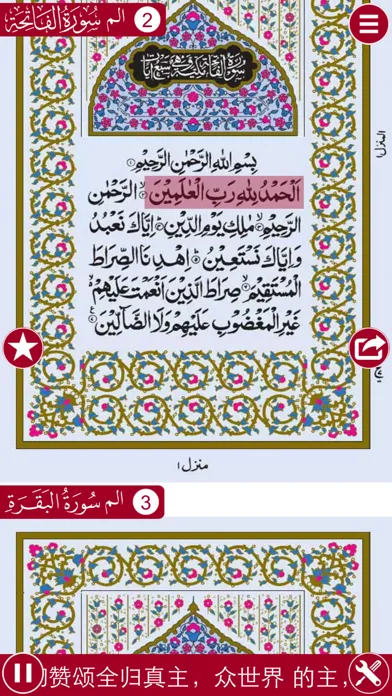 الم سُورَةُ الفَاتِحَة 2
سُوْرَةُ الْفَاتِحَةِ مَكِّيَّةٌ وَّهِيَ سَبْعُ اٰيَاتٍ
بِسْمِ اللهِ الرَّحْمٰنِ الرَّحِيْمِ
اَلْحَمْدُ لِلّٰهِ رَبِّ الْعٰلَمِيْنَ ۙ الرَّحْمٰنِ
الرَّحِيْمِ ۙ مٰلِكِ يَوْمِ الدِّيْنِ ؕ اِيَّاكَ نَعْبُدُ
وَاِيَّاكَ نَسْتَعِيْنُ ؕ اِهْدِنَا الصِّرَاطَ
الْمُسْتَقِيْمَ ۙ صِرَاطَ الَّذِيْنَ اَنْعَمْتَ عَلَيْهِمْ ۙ
غَيْرِ الْمَغْضُوْبِ عَلَيْهِمْ وَلَا الضَّآلِّيْنَ
المنزل ۱
منزل ۱
الم سُورَةُ البَقَرَةِ 3
赞颂全归真主，众世界 的主，